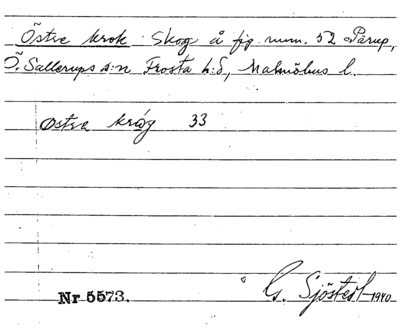 Östre krok Skog å fig. num. 52 Pårup,
Ö. Sallerups s:n Frosta h:d, Malmöhus l.
østra kråg 33
Nr 5573. G. Sjöstedt 1940